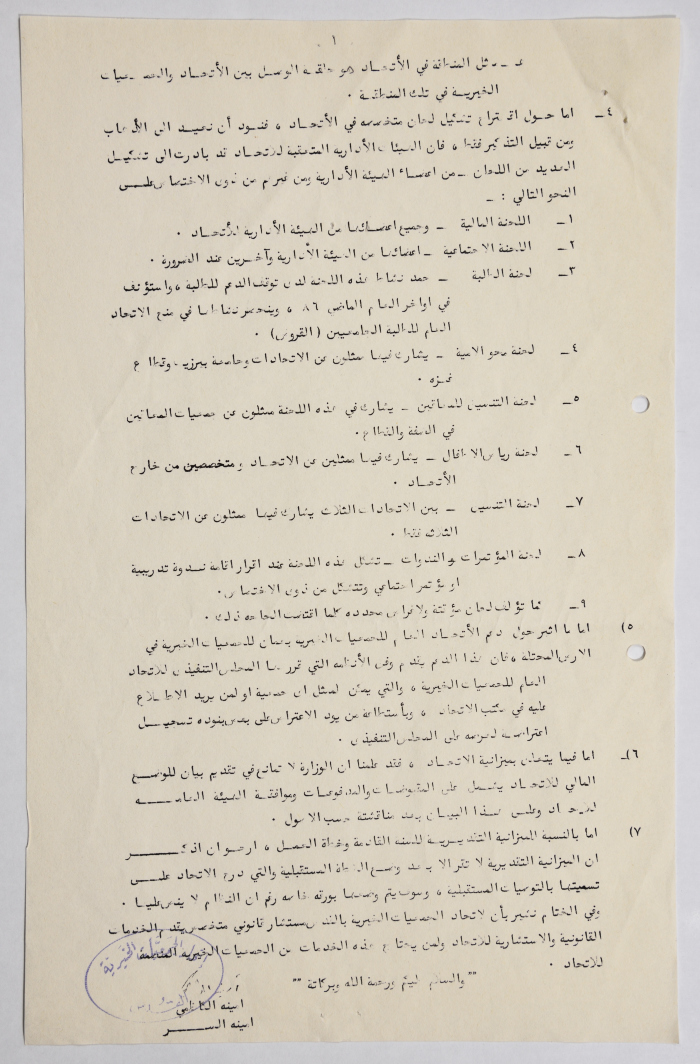 ١
ـ مثل المنطقة في الأتحاد هو حلقة الوصل بين الأتحاد والجمعيات
الخيرية في تلك المنطقة .
٤ـ اما حول اقتراح تشكيل لجان متخصصه في الأتحاد ، فنود أن نعيد الى الأذهاب
ومن قبيل التذكير فقط ، فان الهيئات الأدارية المتعقبة للاتحاد قد بادرت الى تشكيل
العديد من اللجان ـ من اعضاء الهيئة الأدارية ومن غيرهم من ذوى الاختصاص على
النحو التالي : ـ
١ـ اللجنة المالية ـ وجميع اعضائها من الهيئة الأدارية للأتحاد .
٢ـ اللجنة الاجتماعية ـ اعضائها من الهيئة الأدارية وآخرين عند الضرورة .
٣ـ لجنة الطلبة ـ جمد نشاط هذه اللجنة لدى توقف الدعم للطلبة ، واستؤنف
في اواخر العام الماضي ٨٦ ، وينحصر نشاطها في منح الاتحاد
العام للطلبة الجامعيين ( القروض ) .
٤ـ لجنة محو الامية ـ يشارك فيها ممثلون عن الاتحادات وجامعة بيرزيت وقطاع
غزه .
٥ـ لجنة التنسيق للمعاقين ـ يشارك في هذه اللجنة ممثلون عن جمعيات المعاقين
في الضفة والقطاع .
٦ـ لجنة رياض الاطفال ـ يشارك فيها ممثلين عن الاتحاد ومتخصصين من خارج
الأتحاد .
٧ـ لجنة التنسيق ـ بين الاتحادات الثلاث يشارك فيها ممثلون عن الاتحادات
الثلاثه فقط .
٨ـ لجنة المؤتمرات والندوات ـ تشكل هذه اللجنة عند اقرار اقامة ندوة تدريبية
او مؤتمر اجتماعي وتتشكل من ذوى الاختصاص .
٩ـ كما تؤلف لجان مؤقتة ولاغراض محدده كلما اقتضت الحاجه ذلك .
٥) اما ما اثير حول دعم الأتحاد العام للجمعيات الخيريه بعمان للجمعيات الخيرية في
الارض المحتلة ، فان هذا الدعم يقدم وفق الأنظمه التي قررها المجلس التنفيذى للاتحاد
العام للجمعيات الخيرية ، والتي يمكن لممثل اى جمعية او لمن يريد الاطلاع
عليه في مكتب الاتحاد ، وبأستطاعة من يود الاعتراض على بعض بنوده تسجيل
اعتراضه لعرضه على المجلس التنفيذى .
٦ـ) اما فيما يتعلق بميزانية الاتحاد ، فقد علمنا ان الوزارة لا تمانع في تقديم بيان للوضع
المالي للاتحاد يشتمل على المقبوضات والمدفوعات وموافقة الهيئة العامه
للاتحاد وعلى هذا البيان بعد مناقشته حسب الاصول .
٧) اما بالنسبة للميزانية التقديرية للسنه القادمة وخطة العمل ، ارجو ان اذكر
ان الميزانية التقديرية لا تقر الا بعد وضع الخطة المستقبلية والتي درج الاتحاد على
تسميتها بالتوصيات المستقبلية ، وسوف يتم وضعها بورقه خاصه رغم ان النظام لا ينص عليها .
وفي الختام نشير بأن لاتحاد الجمعيات الخيرية بالقدس مستشار قانوني متخصص يقدم الخدمات
القانونية والاستشارية للاتحاد ولمن يحتاج هذه الخدمات من الجمعيات الخيرية المنظمة
للاتحاد .
"" والسلام عليكم ورحمة الله وبركاتة ""
الجمعيات الخيرية
القدس
امينه الكاظمي
امينه الســـر